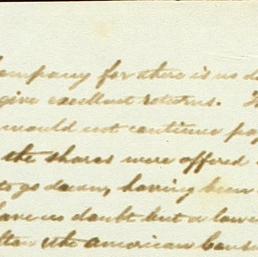 Company for there is no d
give excellent returns.
would not continue pay
the shares were offered
to go down, having been
have no doubt but a lower
the American Consu